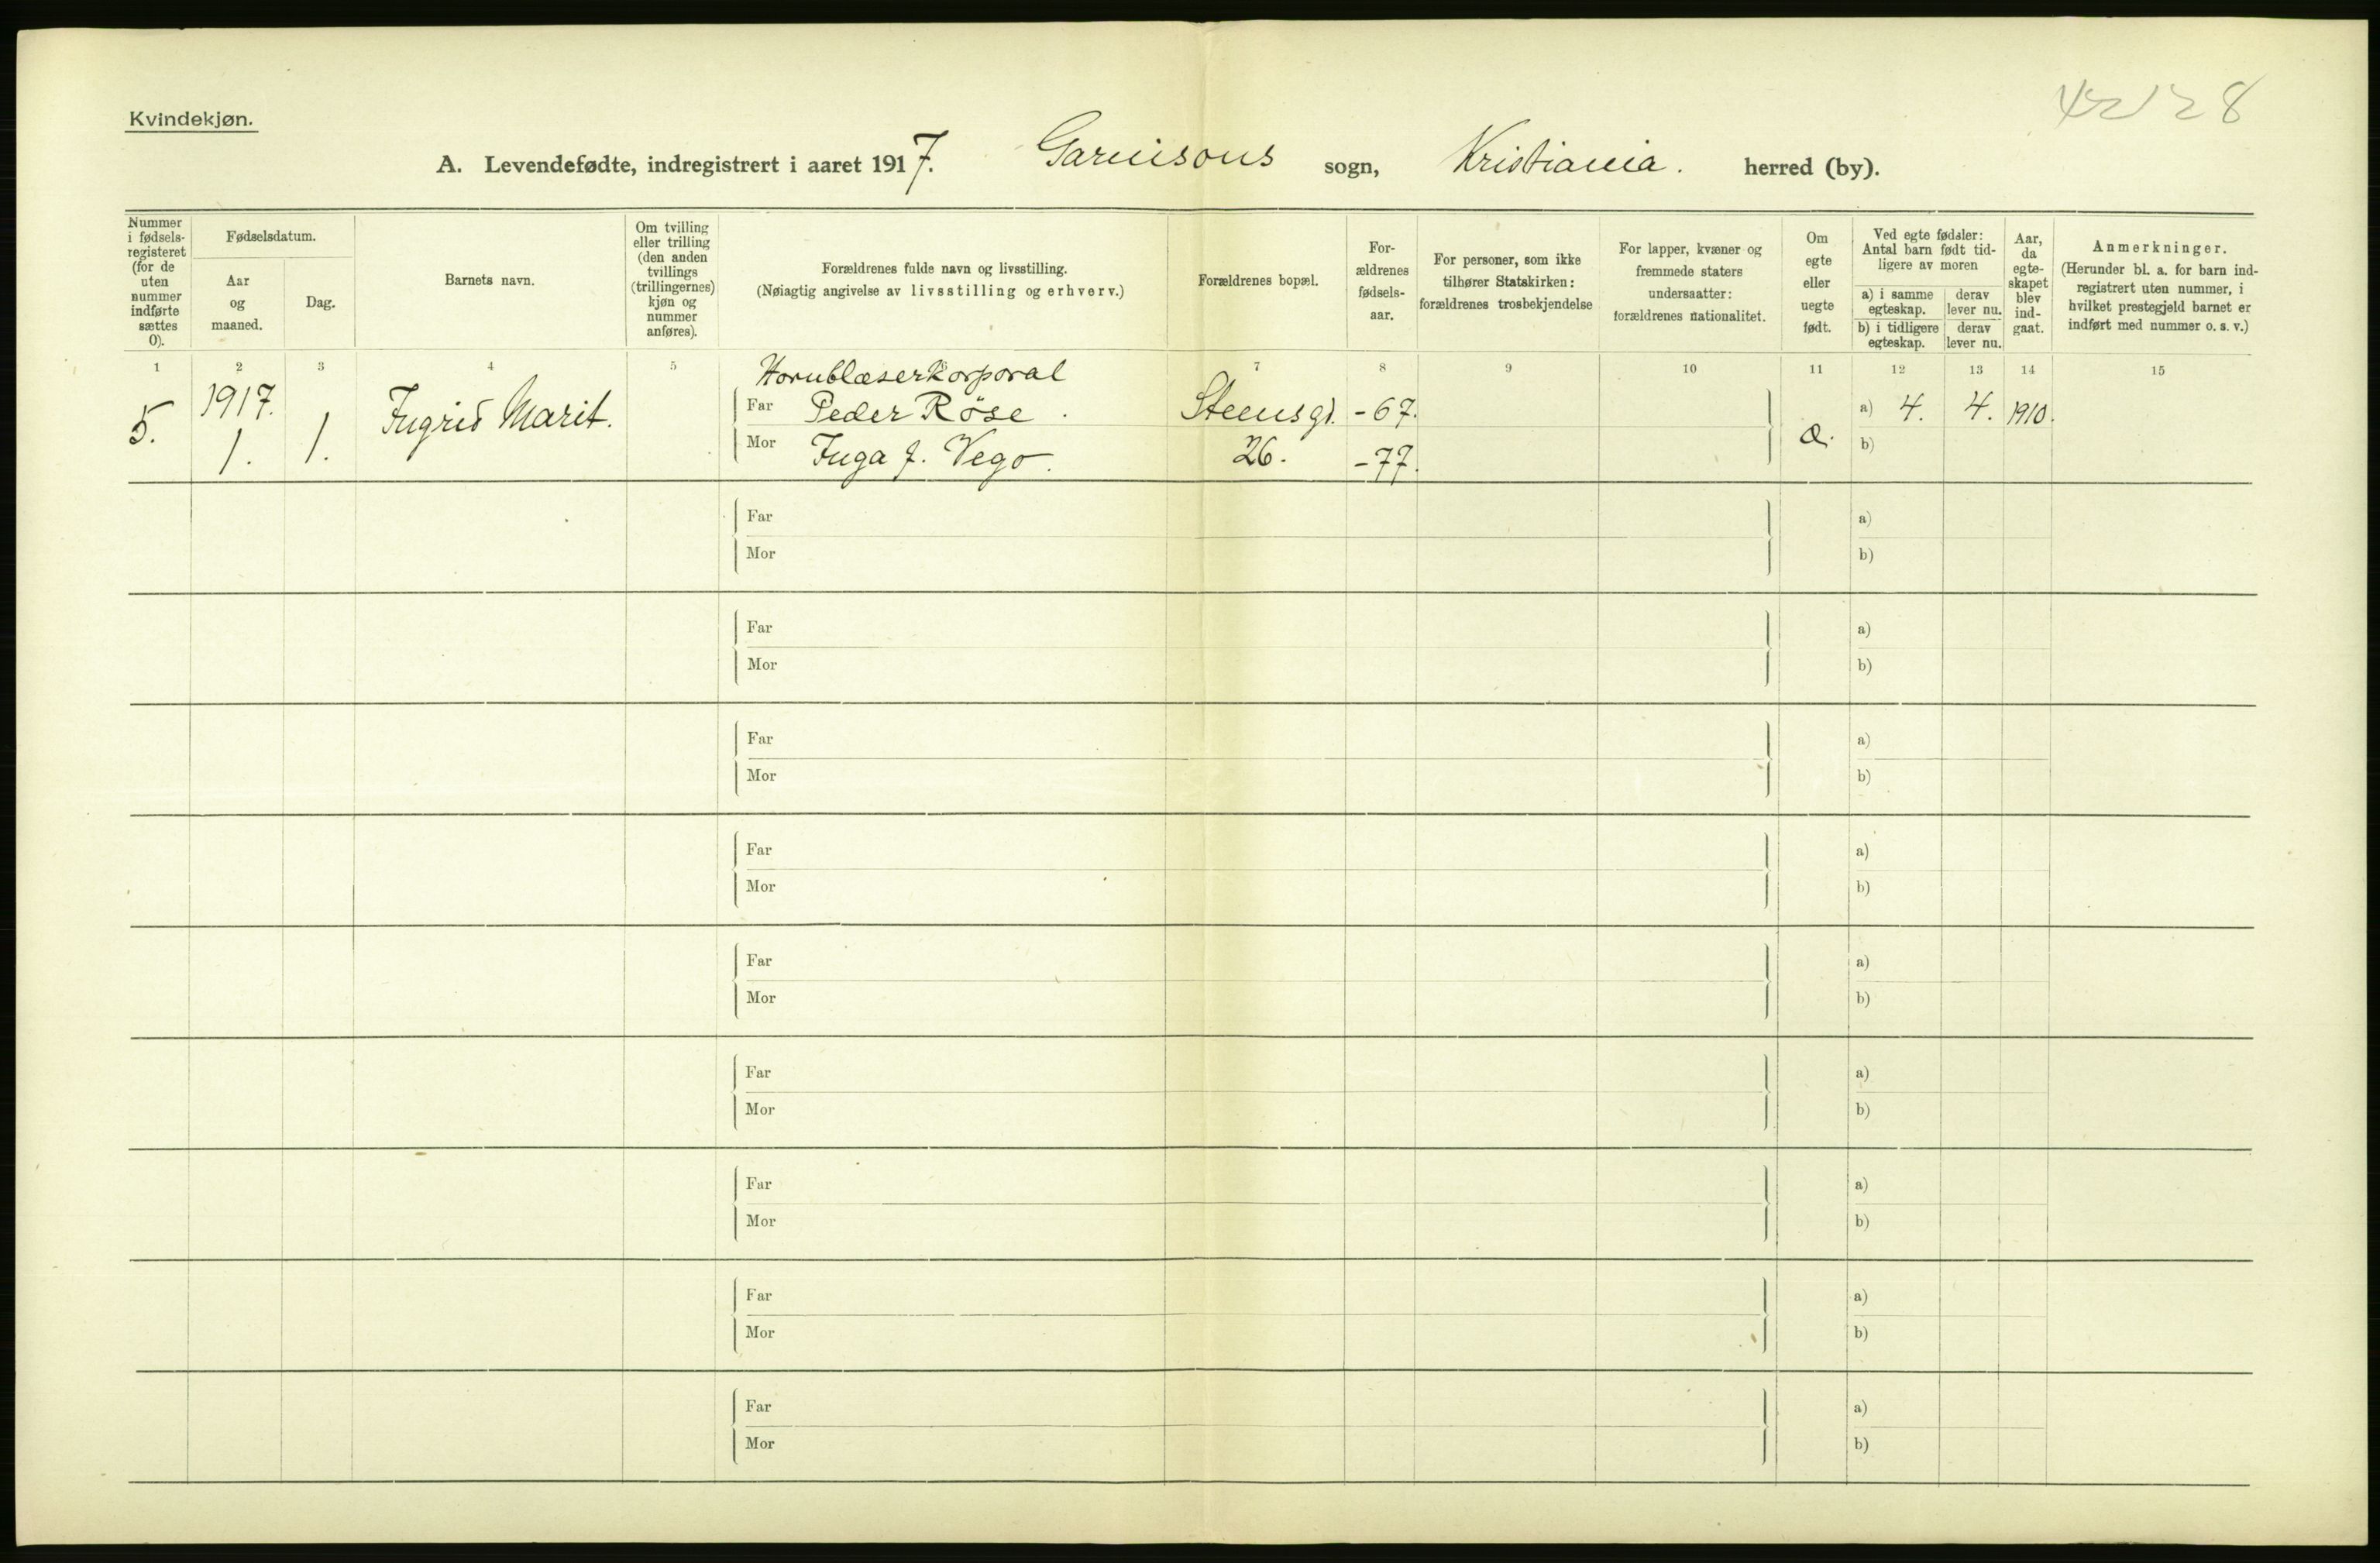 Kvindekjøn.
A. Levendefødte, indregistrert i aaret 1917. Garnisons sogn, Kristiania. herred (by).
Nummer i fødsels-registeret (for de uten nummer indførte sættes 0).
Fødselsdatum.
Aar og maaned.
Dag.
Barnets navn.
Om tvilling eller trilling (den anden tvillings (trillingernes) kjøn og nummer anføres).
Forældrenes fulde navn og livsstilling.
(Nøiagtig angivelse av livsstilling og erhverv.)
Forældrenes bopæl.
For-ældrenes fødsels-aar.
For personer, som ikke tilhører Statskirken: forældrenes trosbekjendelse
For lapper, kvæner og fremmede staters undersaatter: forældrenes nationalitet.
Om egte eller uegte født.
Ved egte fødsler: Antal barn født tid-ligere av moren
a) i samme egteskap.
derav lever nu.
b) i tidligere egteskap.
derav lever nu.
Aar, da egte-skapet blev ind-gaat.
Anmerkninger.
(Herunder bl. a. for barn ind-registrert uten nummer, i hvilket prestegjeld barnet er indført med nummer o. s. v.)
1 2 3 4 5 7 8 9 10 11 12 13 14 15
Hornblæserkorporal
5. 1917. 1. 1. Ingrid Marit.
Far Peder Röse. Steensgt. -67. a) 4. 4. 1910.
Mor Inga f. Vego. 26. -77. æ. b)
Far a)
Mor b)
Far a)
Mor b)
Far a)
Mor b)
Far a)
Mor b)
Far a)
Mor b)
Far a)
Mor b)
Far a)
Mor b)
Far a)
Mor b)
Far a)
Mor b)